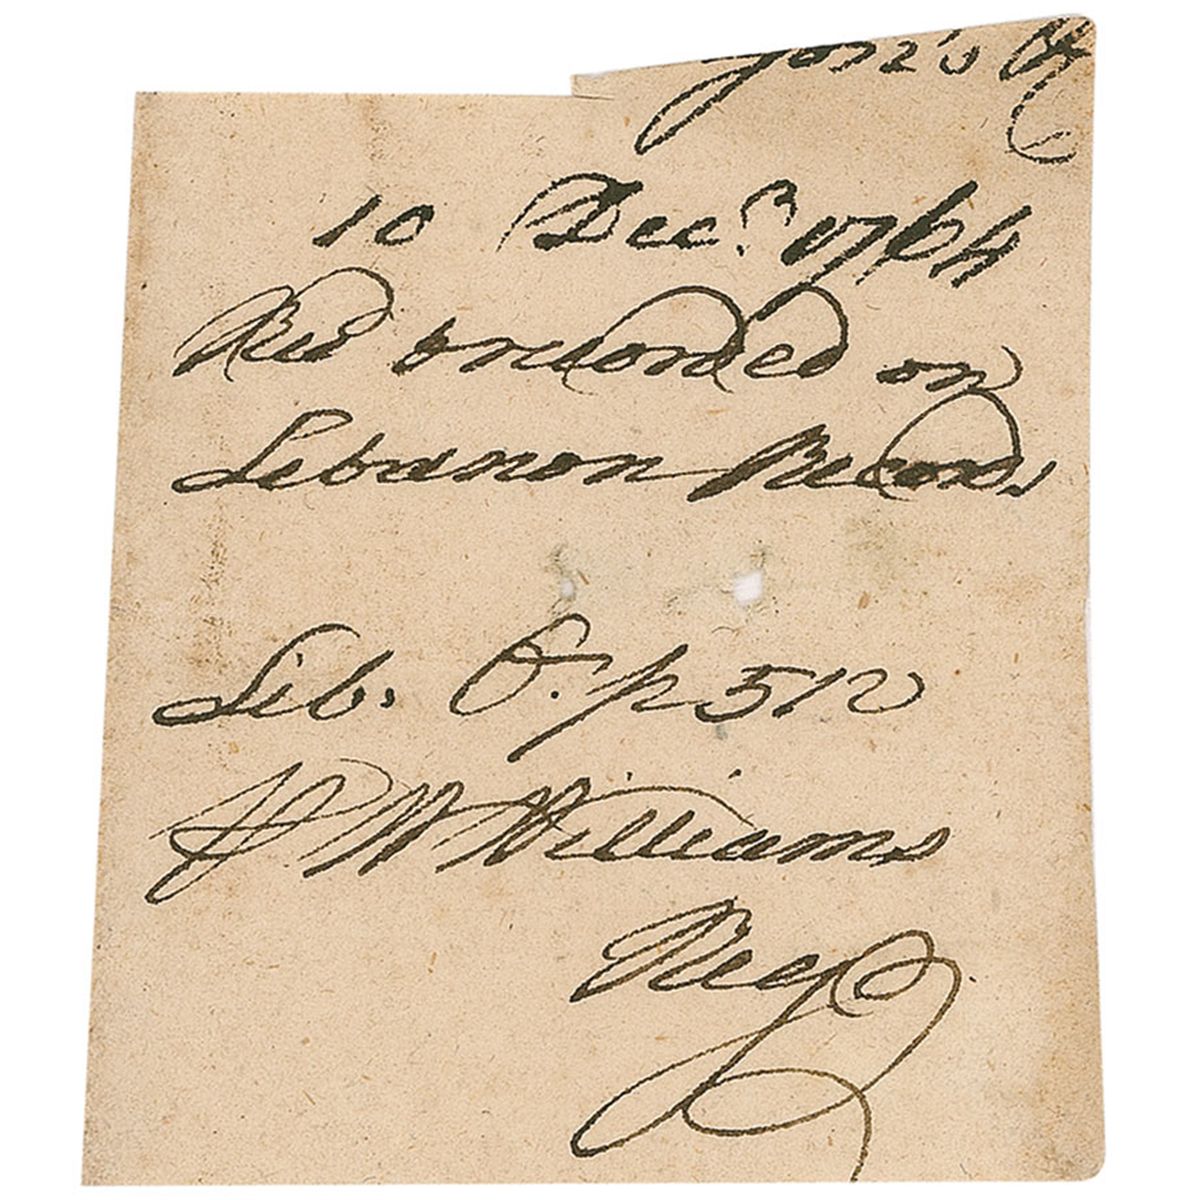 10 Decr. 1764
Recd & recorded on
Lebanon Records
Lib. 6. p 512
W Williams
Regr